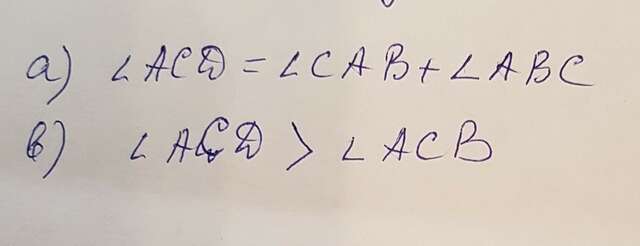 а) ∠ACD = ∠CAB + ∠ABC
в) ∠ACD > ∠ACB